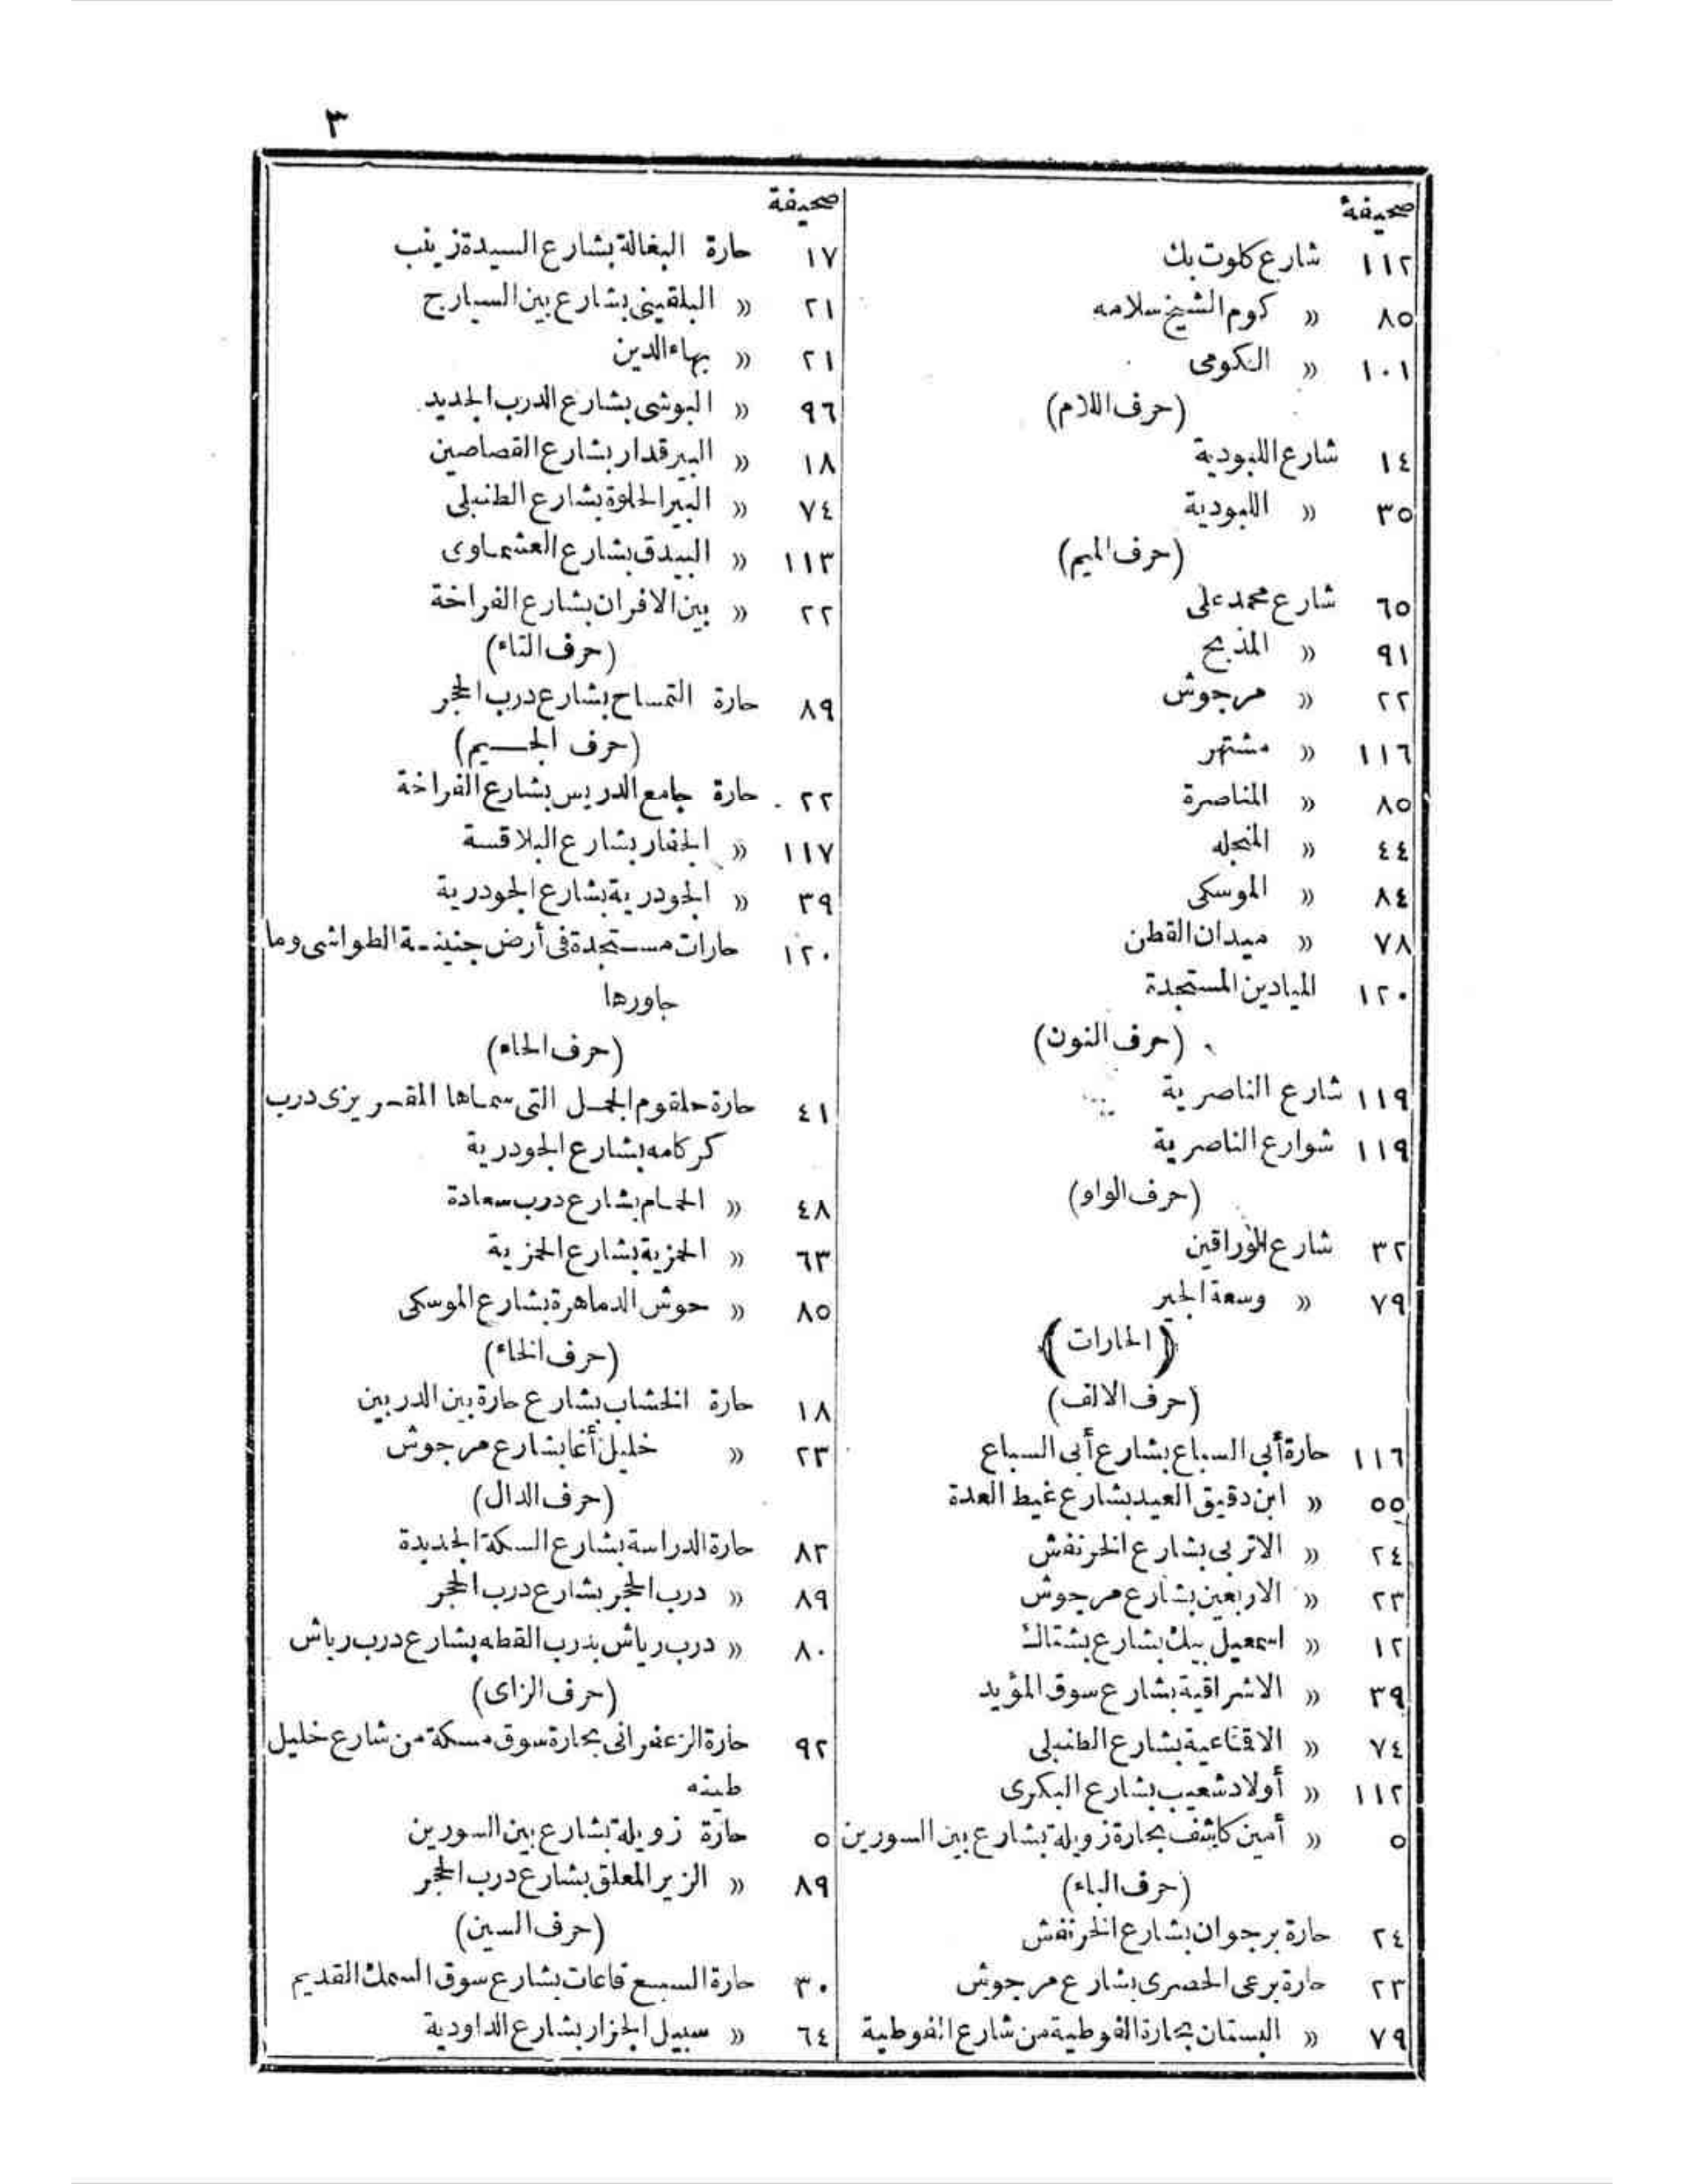 ٣
صحيفة
١١٢ شارع كلوت بك
٨٥ » كوم الشيخ سلامه
١٠١ » الكومى
(حرف اللام)
١٤ شارع اللبودية
٣٥ » اللبودية
(حرف الميم)
٦٥ شارع محمد على
٩١ » المذبح
٢٢ » مرجوش
١١٦ » مشتهر
٨٥ » المناصرة
٤٤ » المنجله
٨٤ » الموسكى
٧٨ » ميدان القطن
١٢٠ الميادين المستجدة
(حرف النون)
١١٩ شارع الناصرية
١١٩ شوارع الناصرية
(حرف الواو)
٣٢ شارع الوراقين
٧٩ » وسعة الجير
(الحارات)
(حرف الالف)
١١٦ حارة أبى السباع بشارع أبى السباع
٥٥ » ابن دقيق العيد بشارع غيط العدة
٢٤ » الاتربى بشارع الخرنفش
٢٣ » الاربعين بشارع مرجوش
١٢ » اسمعيل بيك بشارع بشتاك
٣٩ » الاشراقية بشارع سوق المؤيد
٧٤ » الاقتاعية بشارع الطنبلى
١١٢ » أولاد شعيب بشارع البكرى
٥ » أمين كاشف بحارة زويلة بشارع بين السورين
(حرف الباء)
٢٤ حارة برجوان بشارع الخرنفش
٢٣ حارة برعى الحصرى بشارع مرجوش
٧٩ » البستان بحارة الفوطية من شارع الفوطية
صحيفة
١٧ حارة البغالة بشارع السيدة زينب
٢١ » البلقينى بشارع بين السيارج
٢١ » بهاء الدين
٩٦ » البوشى بشارع الدرب الجديد
١٨ » البيرقدار بشارع القصاصين
٧٤ » البير الحلوة بشارع الطنبلى
١١٣ » البيدق بشارع العشماوى
٢٢ » بين الافران بشارع الفراخة
(حرف التاء)
٨٩ حارة التمساح بشارع درب الحجر
(حرف الجسيم)
٢٢ حارة جامع الدريس بشارع الفراخة
١١٧ » الجفار بشارع البلاقسة
٣٩ » الجودرية بشارع الجودرية
١٢٠ حارات مستجدة فى أرض جنينة الطواشى وما
جاورها
(حرف الحاء)
٤١ حارة حلقوم الجمل التى سماها المقريزى درب
كركامه بشارع الجودرية
٤٨ » الحمام بشارع درب سعادة
٦٣ » الحمزية بشارع الحمزية
٨٥ » حوش الدماهرة بشارع الموسكى
(حرف الخاء)
١٨ حارة الخشاب بشارع حارة بين الدربين
٢٣ » خليل أغا بشارع مرجوش
(حرف الدال)
٨٣ حارة الدراسة بشارع السكة الجديدة
٨٩ » درب الحجر بشارع درب الحجر
٨٠ » درب رياش بدرب القطه بشارع درب رياش
(حرف الزاى)
٩٢ حارة الزعفرانى بحارة سوق مسكة من شارع خليل
طينه
٥ حارة زويلة بشارع بين السورين
٨٩ » الزير المعلق بشارع درب الحجر
(حرف السين)
٣٠ حارة السبع قاعات بشارع سوق السمك القديم
٦٤ » سبيل الجزار بشارع الداودية